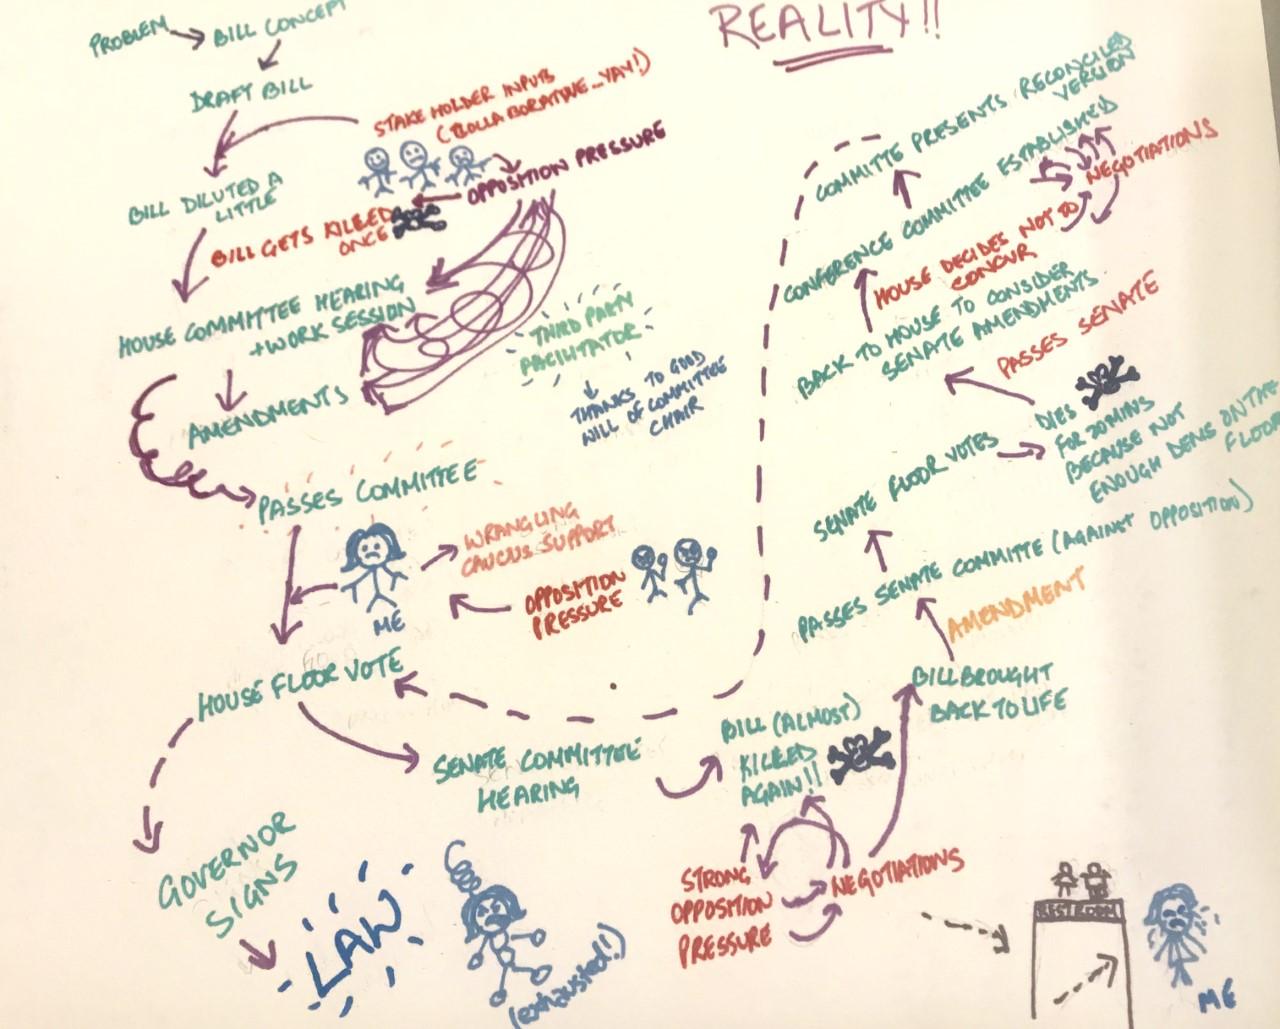 REALITY!!
PROBLEM
BILL CONCEPT
DRAFT BILL
STAKE HOLDER INPUTS
(COLLABORATIVE...YAY!)
OPPOSITION PRESSURE
BILL DILUTED A
LITTLE
BILL GETS KILLED
ONCE
HOUSE COMMITTEE HEARING
+ WORK SESSION
THIRD PARTY
FACILITATOR
THANKS TO GOOD
WILL OF COMMITTEE
CHAIR
AMENDMENTS
PASSES COMMITTEE
WRANGLING
CAUCUS SUPPORT
OPPOSITION
PRESSURE
ME
HOUSE FLOOR VOTE
SENATE COMMITTEE
HEARING
BILL (ALMOST)
KILLED
AGAIN!!
STRONG
OPPOSITION
PRESSURE
NEGOTIATIONS
RESTROOM
ME
BILL BROUGHT
BACK TO LIFE
AMENDMENT
PASSES SENATE COMMITTE (AGAINST OPPOSITION)
SENATE FLOOR VOTES
DIES
FOR 20 MINS
BECAUSE NOT
ENOUGH DEMS ON THE
FLOOR
PASSES SENATE
BACK TO HOUSE TO CONSIDER
SENATE AMENDMENTS
HOUSE DECIDES NOT TO
CONCUR
CONFERENCE COMMITTEE ESTABLISHED
NEGOTIATIONS
COMMITTE PRESENTS RECONCILED
VERSION
GOVERNOR
SIGNS
LAW
(exhausted!)